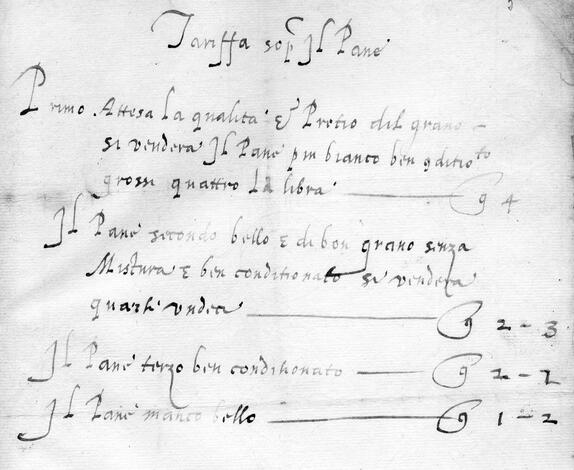 Tariffa sop Il Pane
Primo Attesa la qualità & Pretio del grano
si vendera Il Pane più bianco ben 9ditioto
grossi quattro la libra g 4
Il Pane secondo bello e di bon grano senza
Mistura e ben conditionato si vendera
quarti undeci g 2 - 3
Il Pane terzo ben conditionato g 2 - 2
Il Pane manco bello g 1 - 2